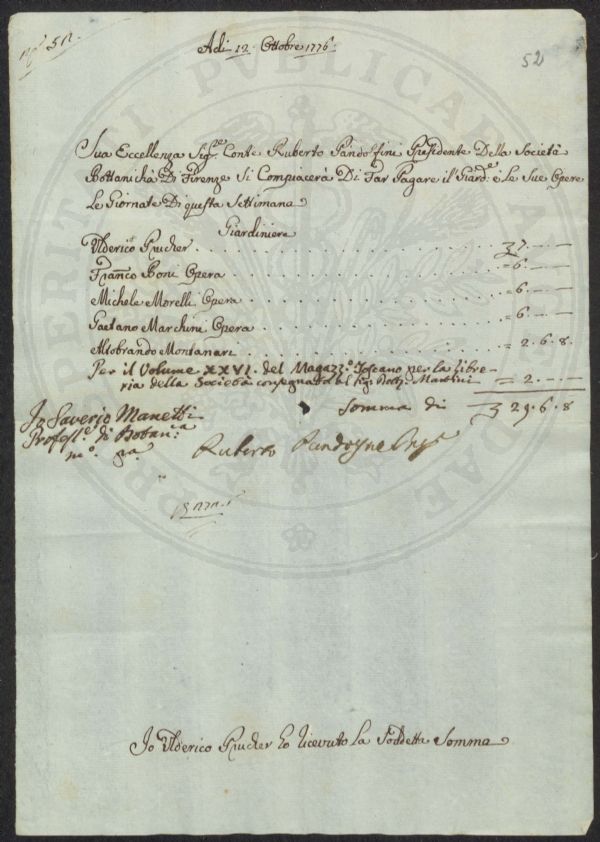 52
Adi 12. Ottobre 1776.
Sua Eccellenza Sig.re Conte Ruberto Pandolfini Presidente Della Società
Bottanicha Di Firenze Si Compiacerà Di Far Pagare il Giard.e e Le Sue Opere
Le Giornate Di questa Settimana
Giardiniere
Ulderico Prucker . . . 7. —
Franco Boni Opera . . . = 6. —
Michele Morelli Opera . . . = 6. —
Gaetano Marchini Opera . . . = 6. —
Aldobrando Montanari . . . = 2. 6. 8
Per il Volume XXVI. del Magazz.o Toscano per la Libre-
ria della Società consegnata al Sig. Dott. Martini = 2. —
Somma di 29. 6. 8
Io Saverio Manetti
Profess.e di Botan.ca
m.o pa.
Ruberto Pandolfini
Io Ulderico Prucker ho ricevuto La Soddetta Somma
PROSPERITATI PVBLICAE